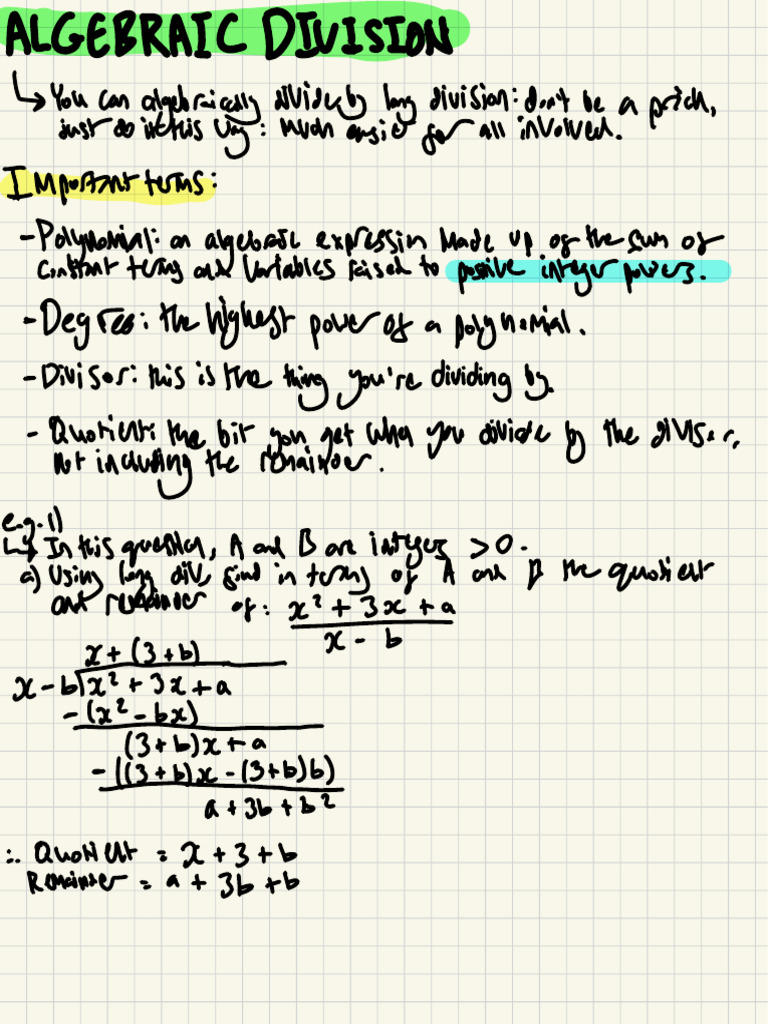 ALGEBRAIC DIVISION
↳ You can algebraically divide by long division: don't be a prick,
just do it this way: much easier for all involved.
Important terms:
- Polynomial: an algebraic expression made up of the sum of
constant terms and variables raised to positive integer powers.
- Degree: the highest power of a polynomial.
- Divisor: this is the thing you're dividing by.
- Quotient: the bit you get when you divide by the divisor,
not including the remainder.
e.g. 1)
↳ In this question, A and B are integers > 0.
a) Using long div, find in terms of A and B the quotient
and remainder of: x² + 3x + a
x - b
x + (3 + b)
x - b) x² + 3x + a
- (x² - bx)
(3 + b)x + a
- ((3 + b)x - (3 + b)b)
a + 3b + b²
∴ Quotient = x + 3 + b
Remainder = a + 3b + b